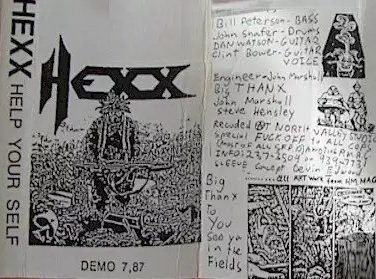 HEXX HELP YOUR SELF
HEXX
DEMO 7,87
Bill Peterson - BASS
John Shafer - Drums
DAN WATSON - GUITAR
Clint Bower - GUITAR
VOICE
Engineer - John Marshall
Big THANX
John Marshall
Steve Hensley
Recorded AT NORTH VALLEY
Special FUCK OFF To ALL COPS
INFO: 237-3504 or
SLEEVE Concept Kevin
ALL ART WORK From
Big
Thanx
To
You
See ya
in the
Fields